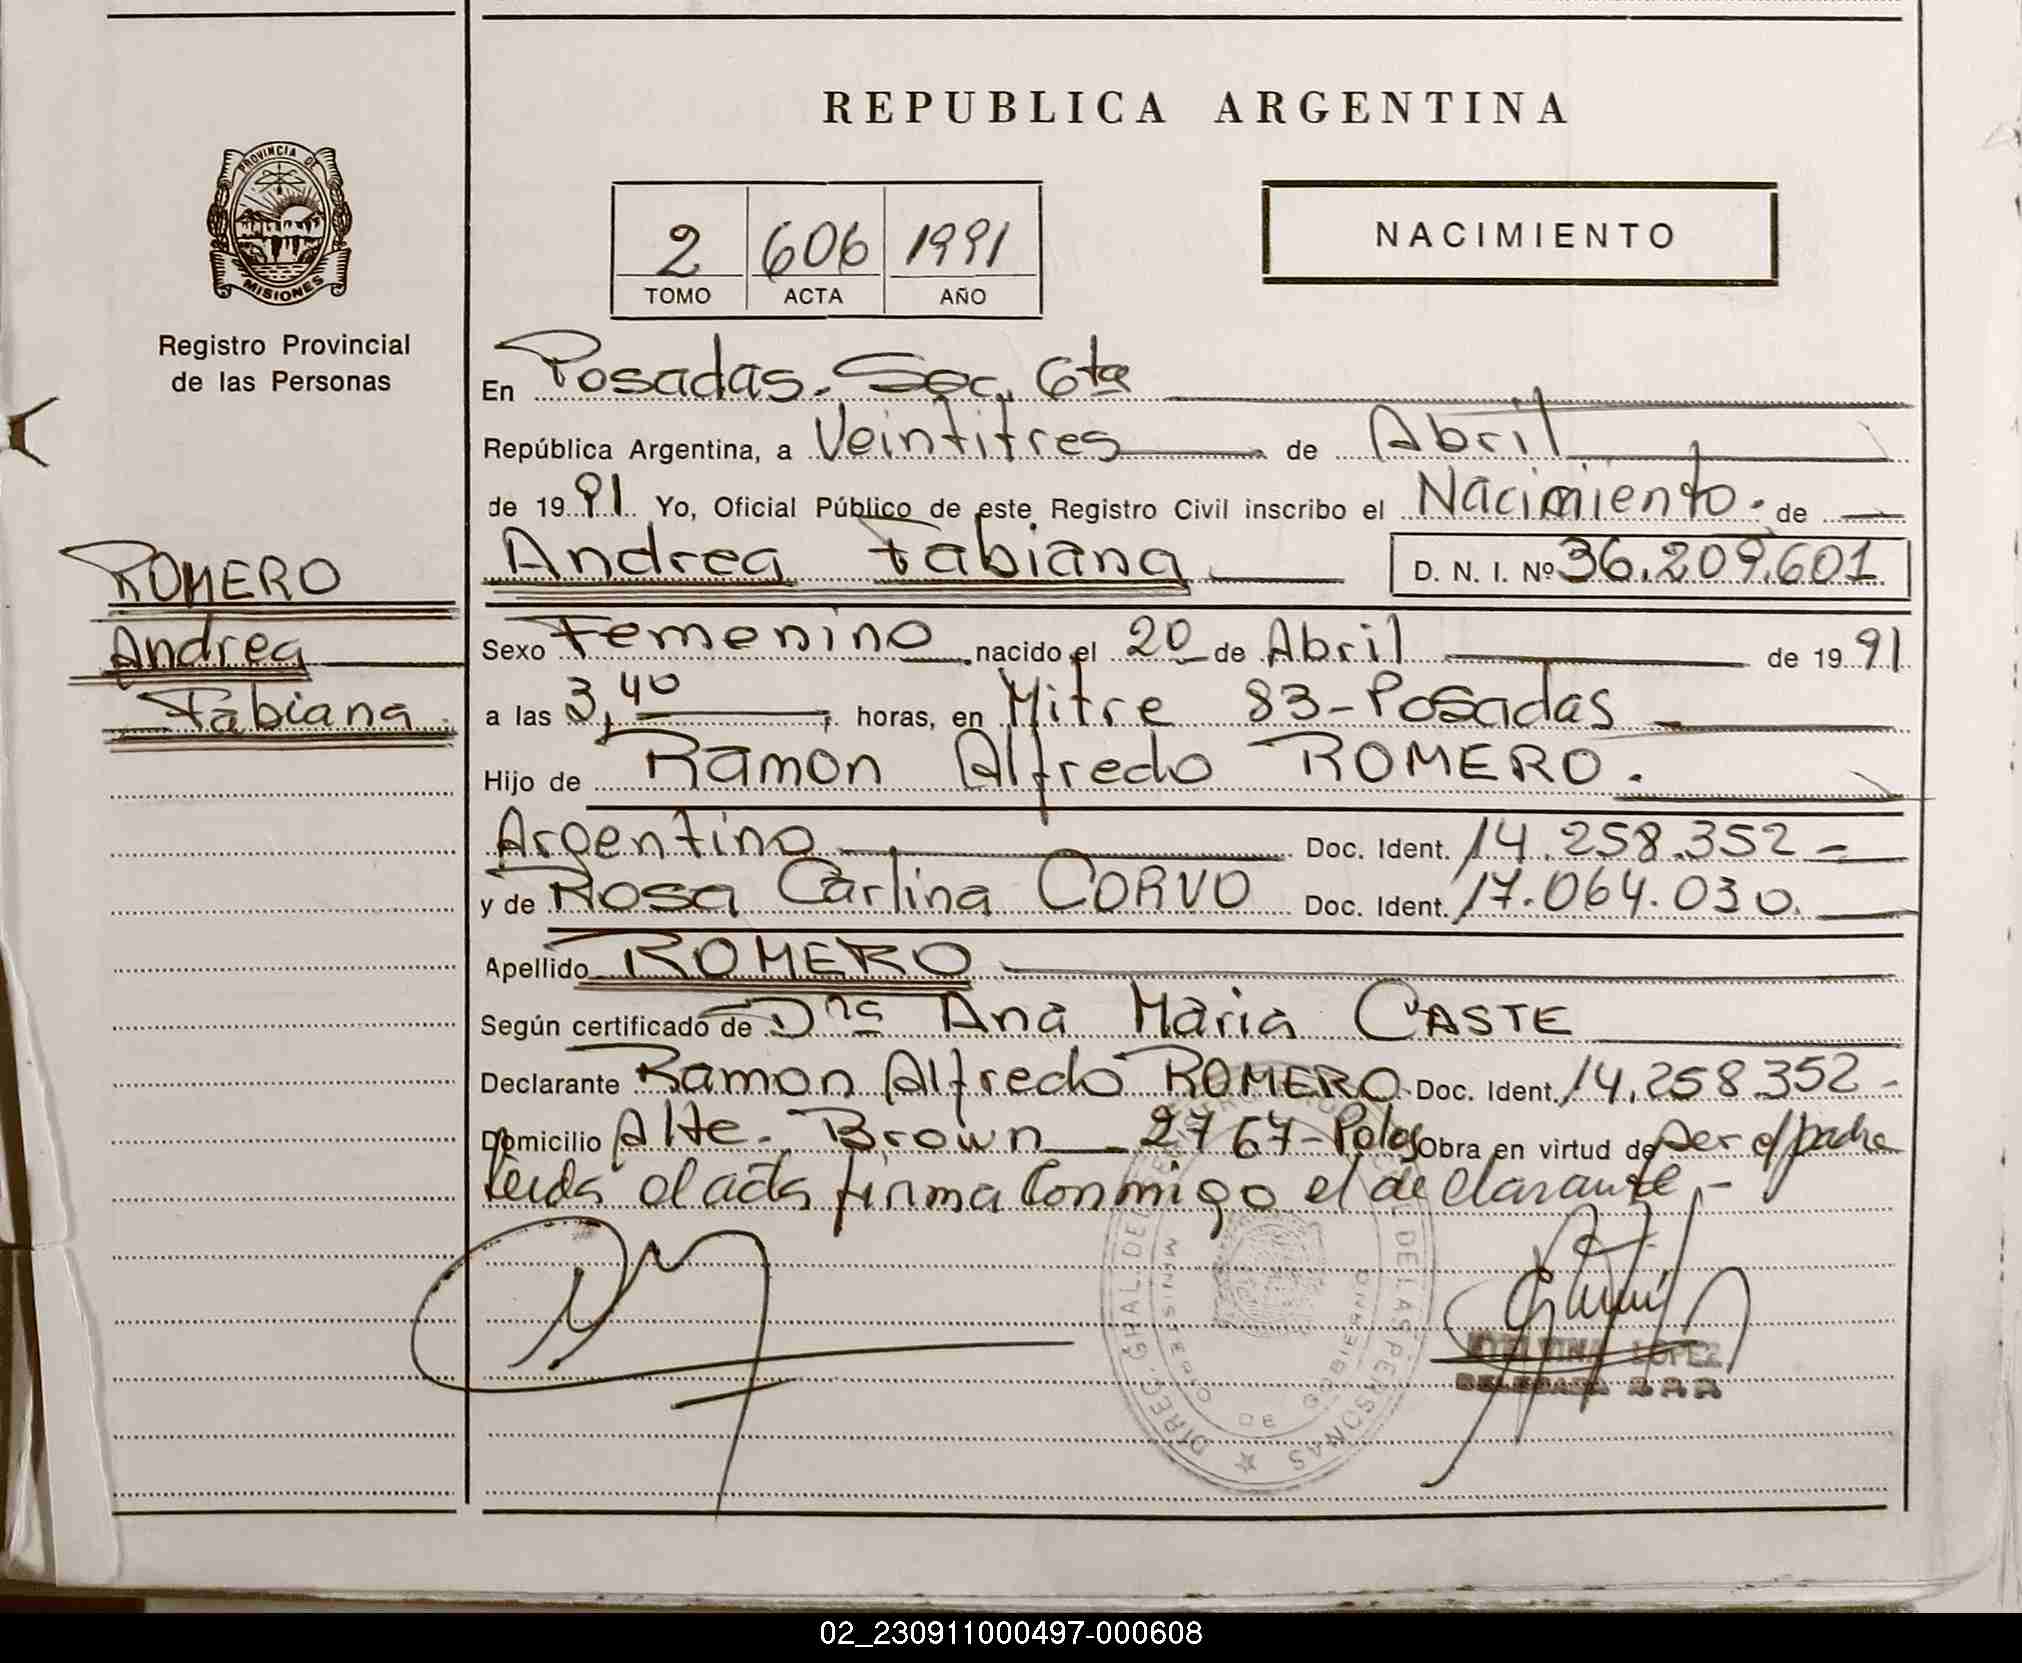 REPUBLICA ARGENTINA
PROVINCIA DE
MISIONES
Registro Provincial
de las Personas
2 606 1991
TOMO ACTA AÑO
NACIMIENTO
En Posadas. Sec. 6ta
República Argentina, a Veintitres de Abril
de 1991 Yo, Oficial Público de este Registro Civil inscribo el Nacimiento. de
ROMERO
Andrea
Fabiana
Andrea Fabiana D. N. I. Nº 36.209.601
Sexo Femenino nacido el 20 de Abril de 1991
a las 3,40 horas, en Mitre 83-Posadas
Hijo de Ramon Alfredo ROMERO.
Argentino Doc. Ident. 14.258.352-
y de Rosa Carlina CORVO Doc. Ident. 17.064.030.
Apellido ROMERO
Según certificado de Ana Maria CASTE
Declarante Ramon Alfredo ROMERO Doc. Ident. 14.258.352-
Domicilio Alte. Brown 2767- Obra en virtud de ser el padre
leida el acta firma conmigo el declarante.-
DIREC. GRAL. DE DE LAS PERSONAS
DE GOBIERNO
LOPEZ
02_230911000497-000608